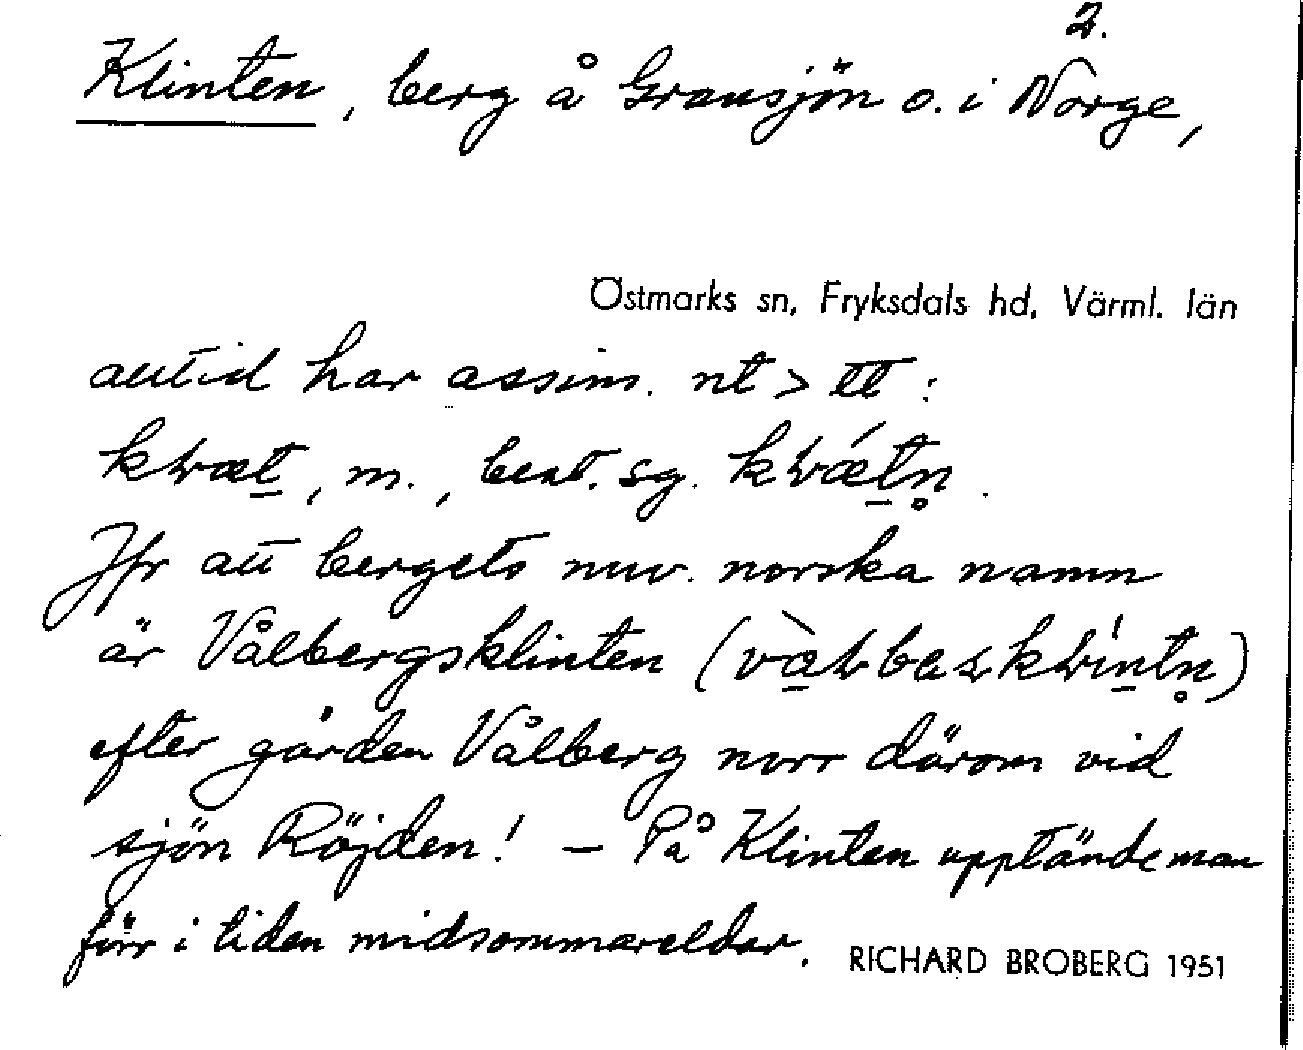 2.
Klinten, berg å Gransjön o. i Norge,
Östmarks sn, Fryksdals hd, Värml. län
alltid har assim. nt > tt :
m., best. sg.
Jfr att bergets nuv. norska namn
är Vålbergsklinten
efter gården Vålberg norr därom vid
sjön Röjden! – På Klinten upptände man
förr i tiden midsommareldar.
RICHARD BROBERG 1951